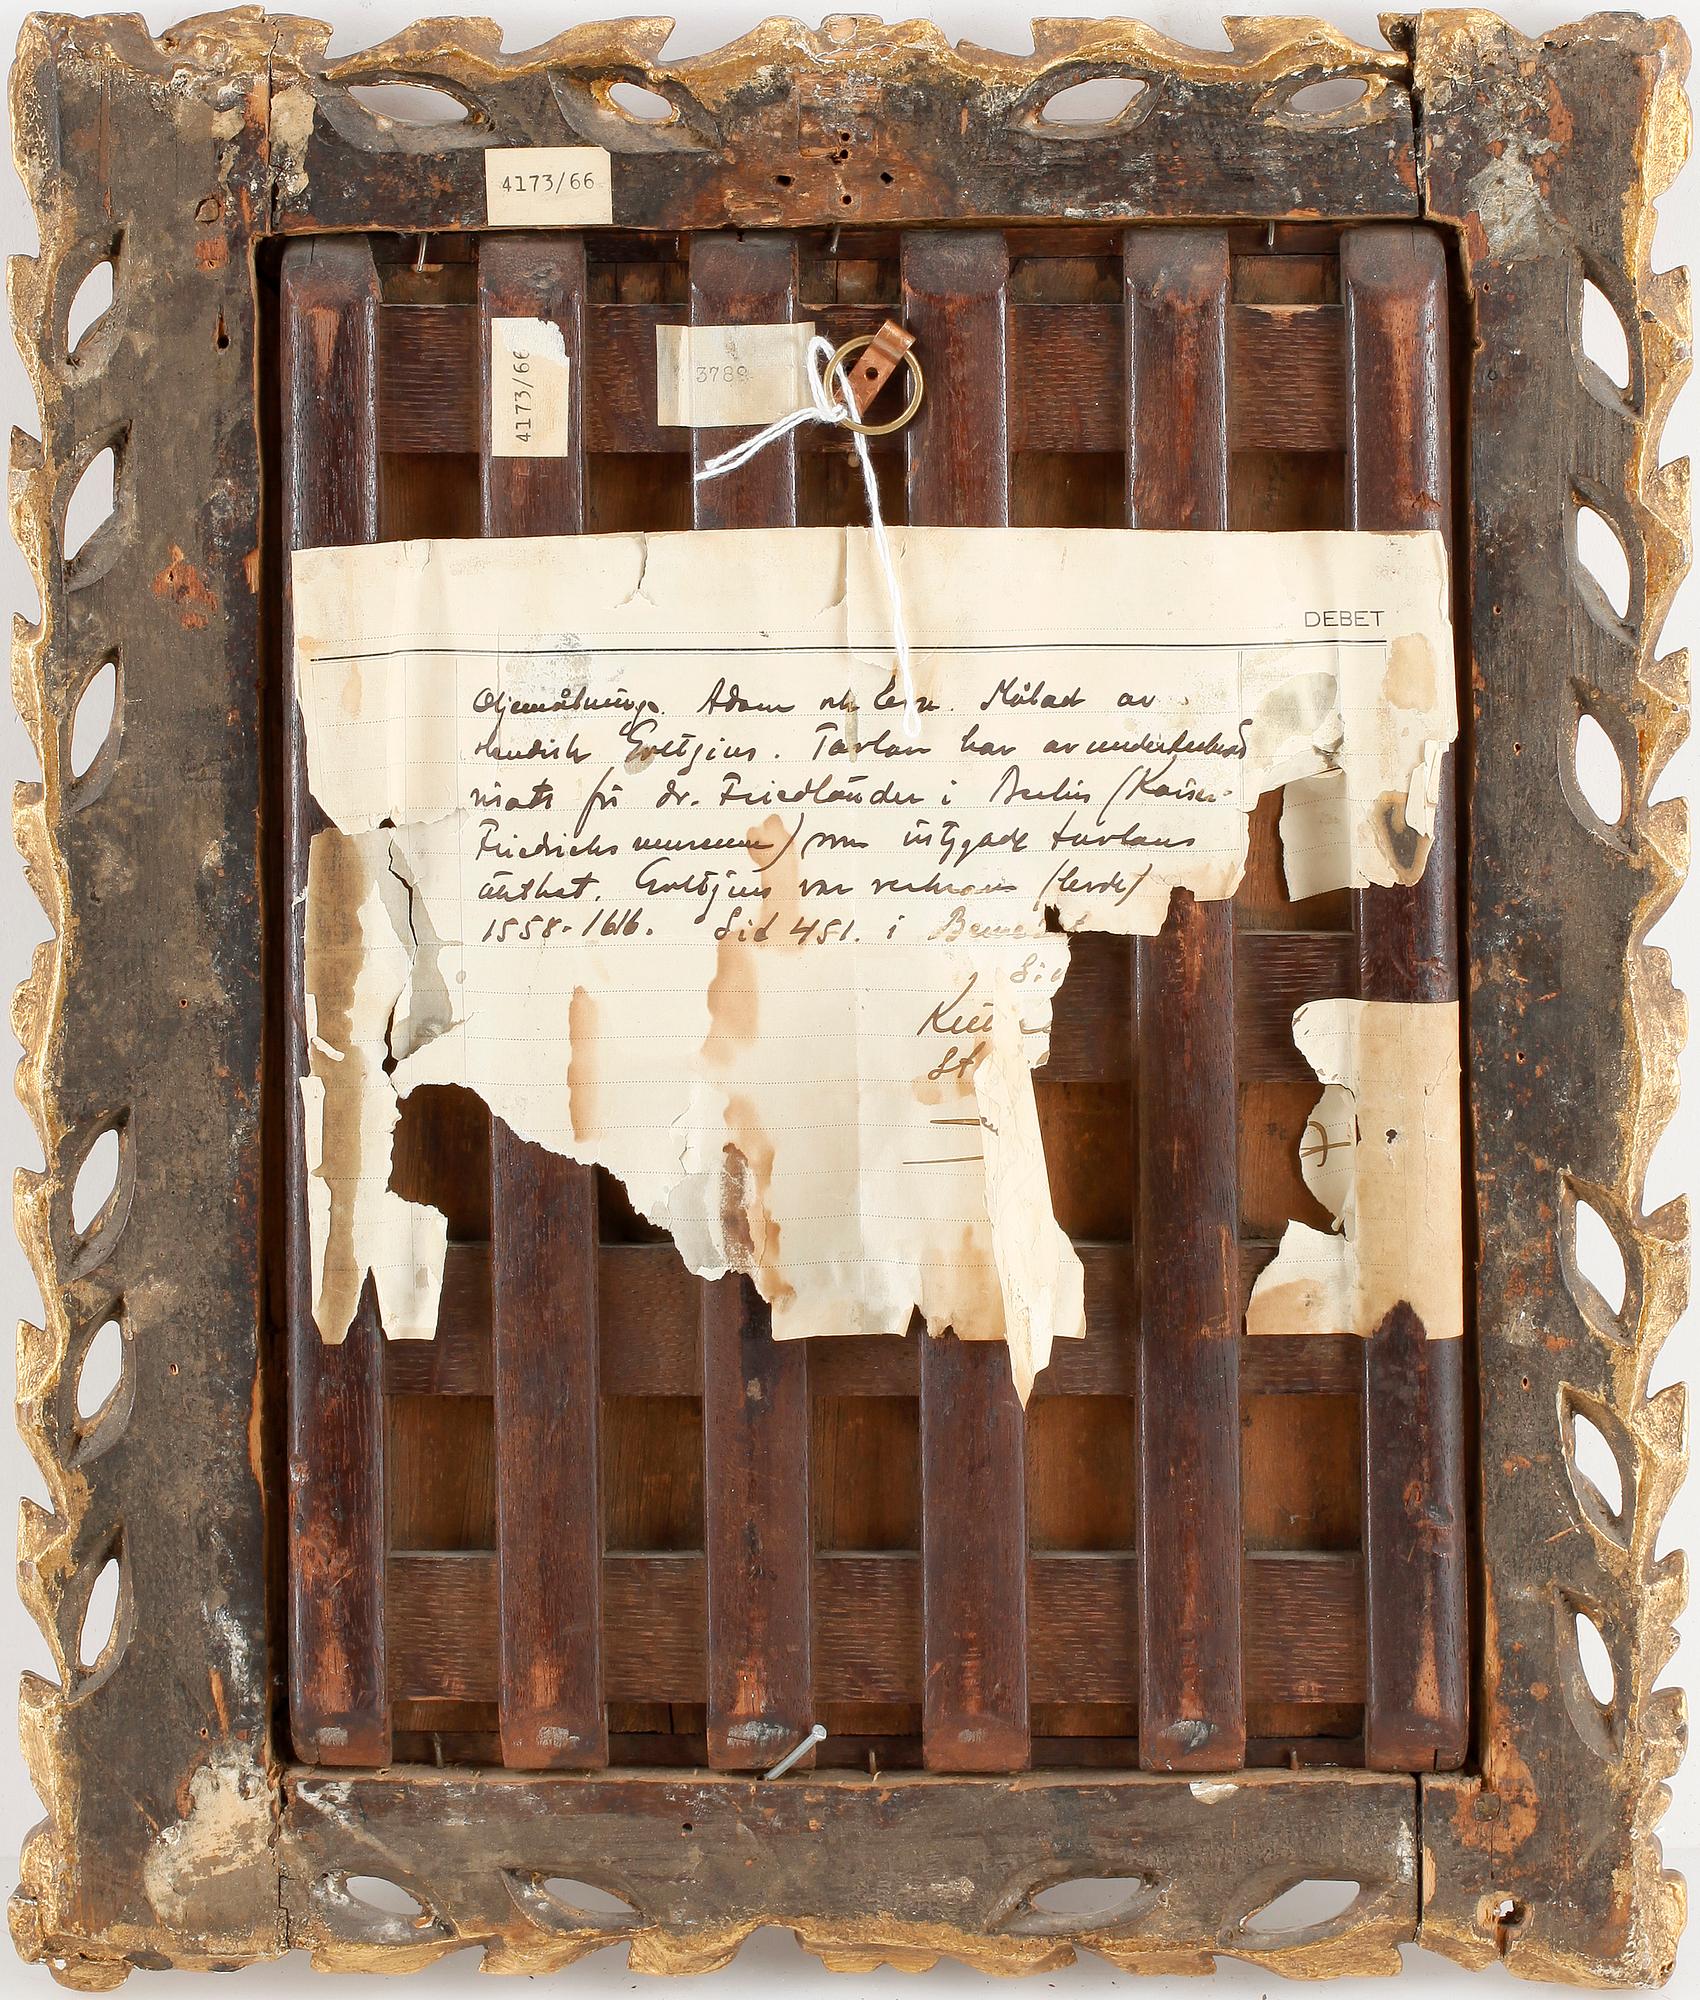 4173/66
4173/66
3789
DEBET
Oljemålning. Adam och Eva. Målad av
Hendrik Goltzius. Tavlan har av undertecknad
visats för dr. Friedländer i Berlin (Kaiser-
Friedrichs museum) som intygade tavlans
äkthet. Goltzius var verksam (levde)
1558-1616. Sid 451. i